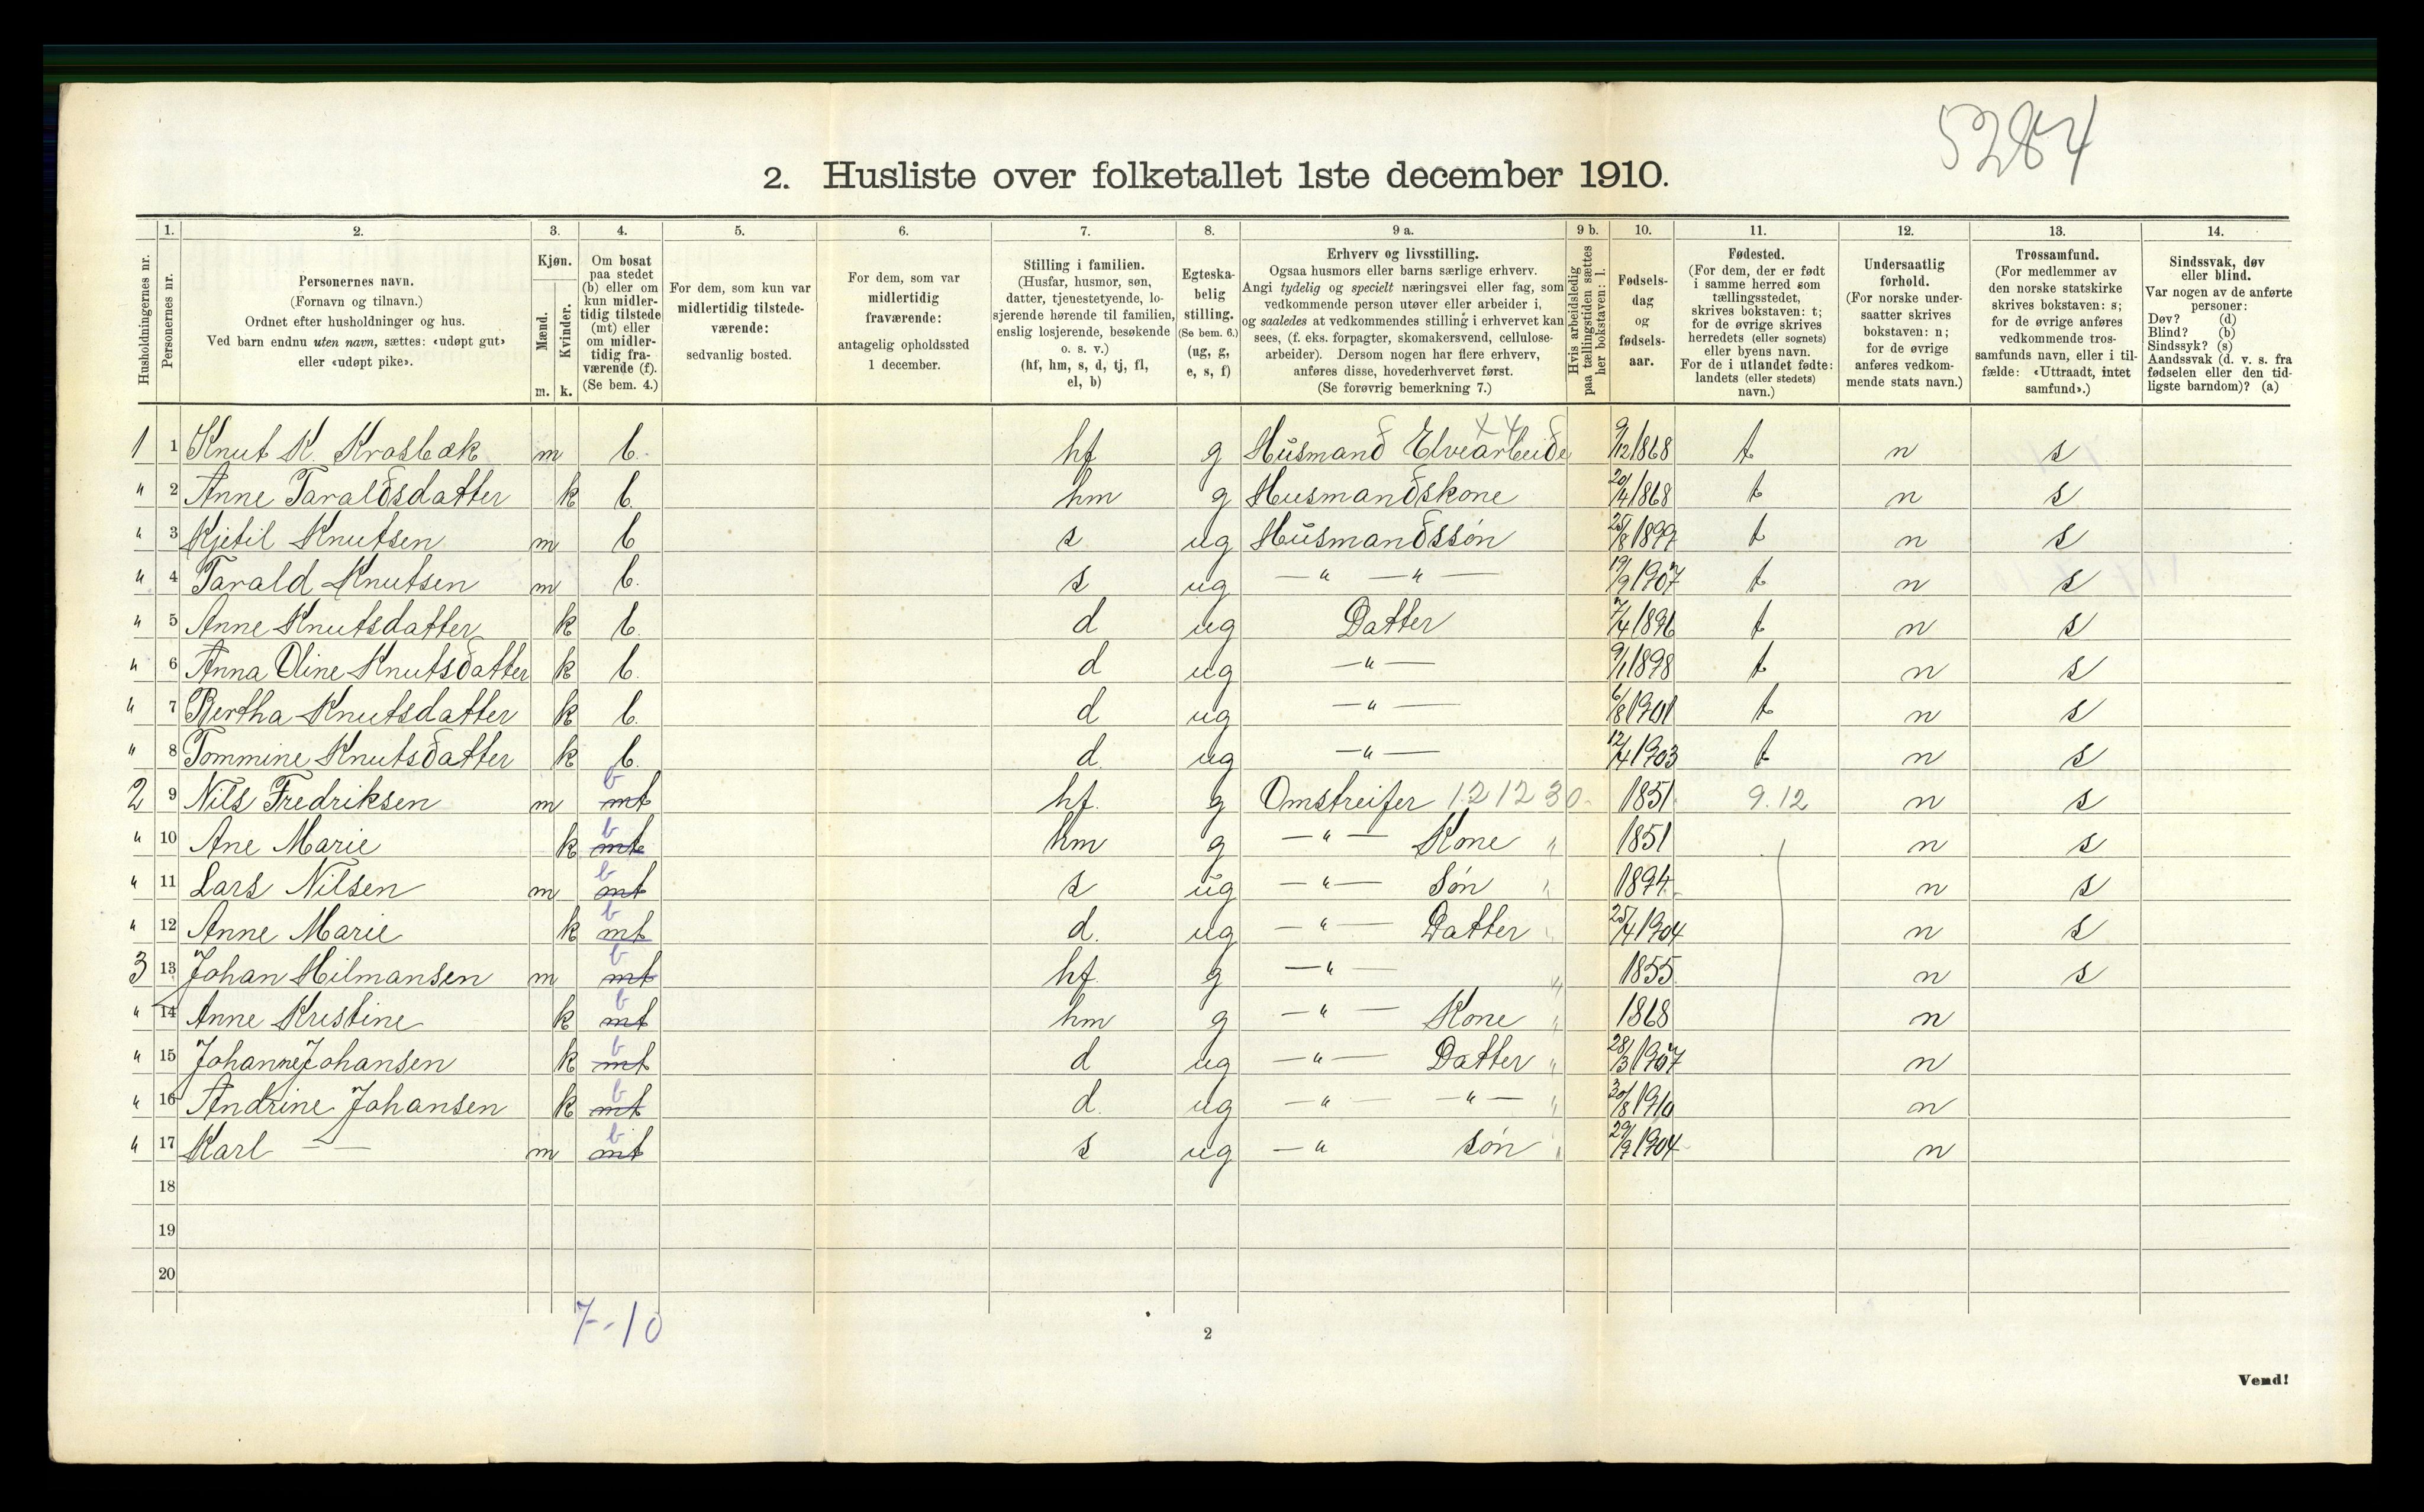 5284
2. Husliste over folketallet 1ste december 1910.
Husholdningernes nr.
1. Personernes nr.
2. Personernes navn. (Fornavn og tilnavn.) Ordnet efter husholdninger og hus. Ved barn endnu uten navn, sættes: «udøpt gut» eller «udøpt pike».
3. Kjøn. Mænd. m. Kvinder. k.
4. Om bosat paa stedet (b) eller om kun midlertidig tilstede (mt) eller om midlertidig fraværende (f). (Se bem. 4.)
5. For dem, som kun var midlertidig tilstedeværende: sedvanlig bosted.
6. For dem, som var midlertidig fraværende: antagelig opholdssted 1 december.
7. Stilling i familien. (Husfar, husmor, søn, datter, tjenestetyende, losjerende hørende til familien, enslig losjerende, besøkende o. s. v.) (hf, hm, s, d, tj, fl, el, b)
8. Egteskabelig stilling. (Se bem. 6.) (ug, g, e, s, f)
9 a. Erhverv og livsstilling. Ogsaa husmors eller barns særlige erhverv. Angi tydelig og specielt næringsvei eller fag, som vedkommende person utøver eller arbeider i, og saaledes at vedkommendes stilling i erhvervet kan sees, (f. eks. forpagter, skomakersvend, cellulosearbeider). Dersom nogen har flere erhverv, anføres disse, hovederhvervet først. (Se forøvrig bemerkning 7.)
9 b. Hvis arbeidsledig paa tællingstiden sættes her bokstaven: l.
10. Fødselsdag og fødselsaar.
11. Fødested. (For dem, der er født i samme herred som tællingsstedet, skrives bokstaven: t; for de øvrige skrives herredets (eller sognets) eller byens navn. For de i utlandet fødte: landets (eller stedets) navn.)
12. Undersaatlig forhold. (For norske undersaatter skrives bokstaven: n; for de øvrige anføres vedkommende stats navn.)
13. Trossamfund. (For medlemmer av den norske statskirke skrives bokstaven: s; for de øvrige anføres vedkommende trossamfunds navn, eller i tilfælde: «Uttraadt, intet samfund».)
14. Sindssvak, døv eller blind. Var nogen av de anførte personer: Døv? (d) Blind? (b) Sindssyk? (s) Aandssvak (d. v. s. fra fødselen eller den tidligste barndom)? (a)
1 1 Knut K. Krosbæk m b. hf g Husmand Elvearbeide x4 9/12 1868 t n s
" 2 Anne Taraldsdatter k b. hm g Husmandskone 20/4 1868 t n s
" 3 Kjetil Knutsen m b s ug Husmandssøn 25/8 1899 t n s
" 4 Tarald Knutsen m b. s ug — " — " — 19/9 1907 t n s
" 5 Anne Knutsdatter k b. d ug Datter 7/4 1896 t n s
" 6 Anna Oline Knutsdatter k b. d ug — " — 9/1 1898 t n s
" 7 Bertha Knutsdatter k b. d ug — " — 6/8 1901 t n s
" 8 Tommine Knutsdatter k b. d. ug — " — 12/4 1903 t n s
2 9 Nils Fredriksen m mt b hf. g Omstreifer 121230. 1851 9.12 n s
" 10 Ane Marie k mt b hm g — " — Kone " 1851 n s
" 11 Lars Nilsen m mt b s ug — " — Søn " 1894 n s
" 12 Anne Marie k mt b d. ug — " — Datter " 25/4 1904 n s
3 13 Johan Hilmansen m mt b hf. g — " — " 1855 n s
" 14 Anne Kristine k mt b hm g — " — Kone " 1868 n
" 15 Johanne Johansen k mt b d ug — " — Datter " 28/3 1907 n
" 16 Andrine Johansen k mt b d. ug — " — — " — " 30/8 1910 n
" 17 Karl — — m mt b s ug — " Søn " 29/9 1904 n
18
19
20
7-10
2
Vend!